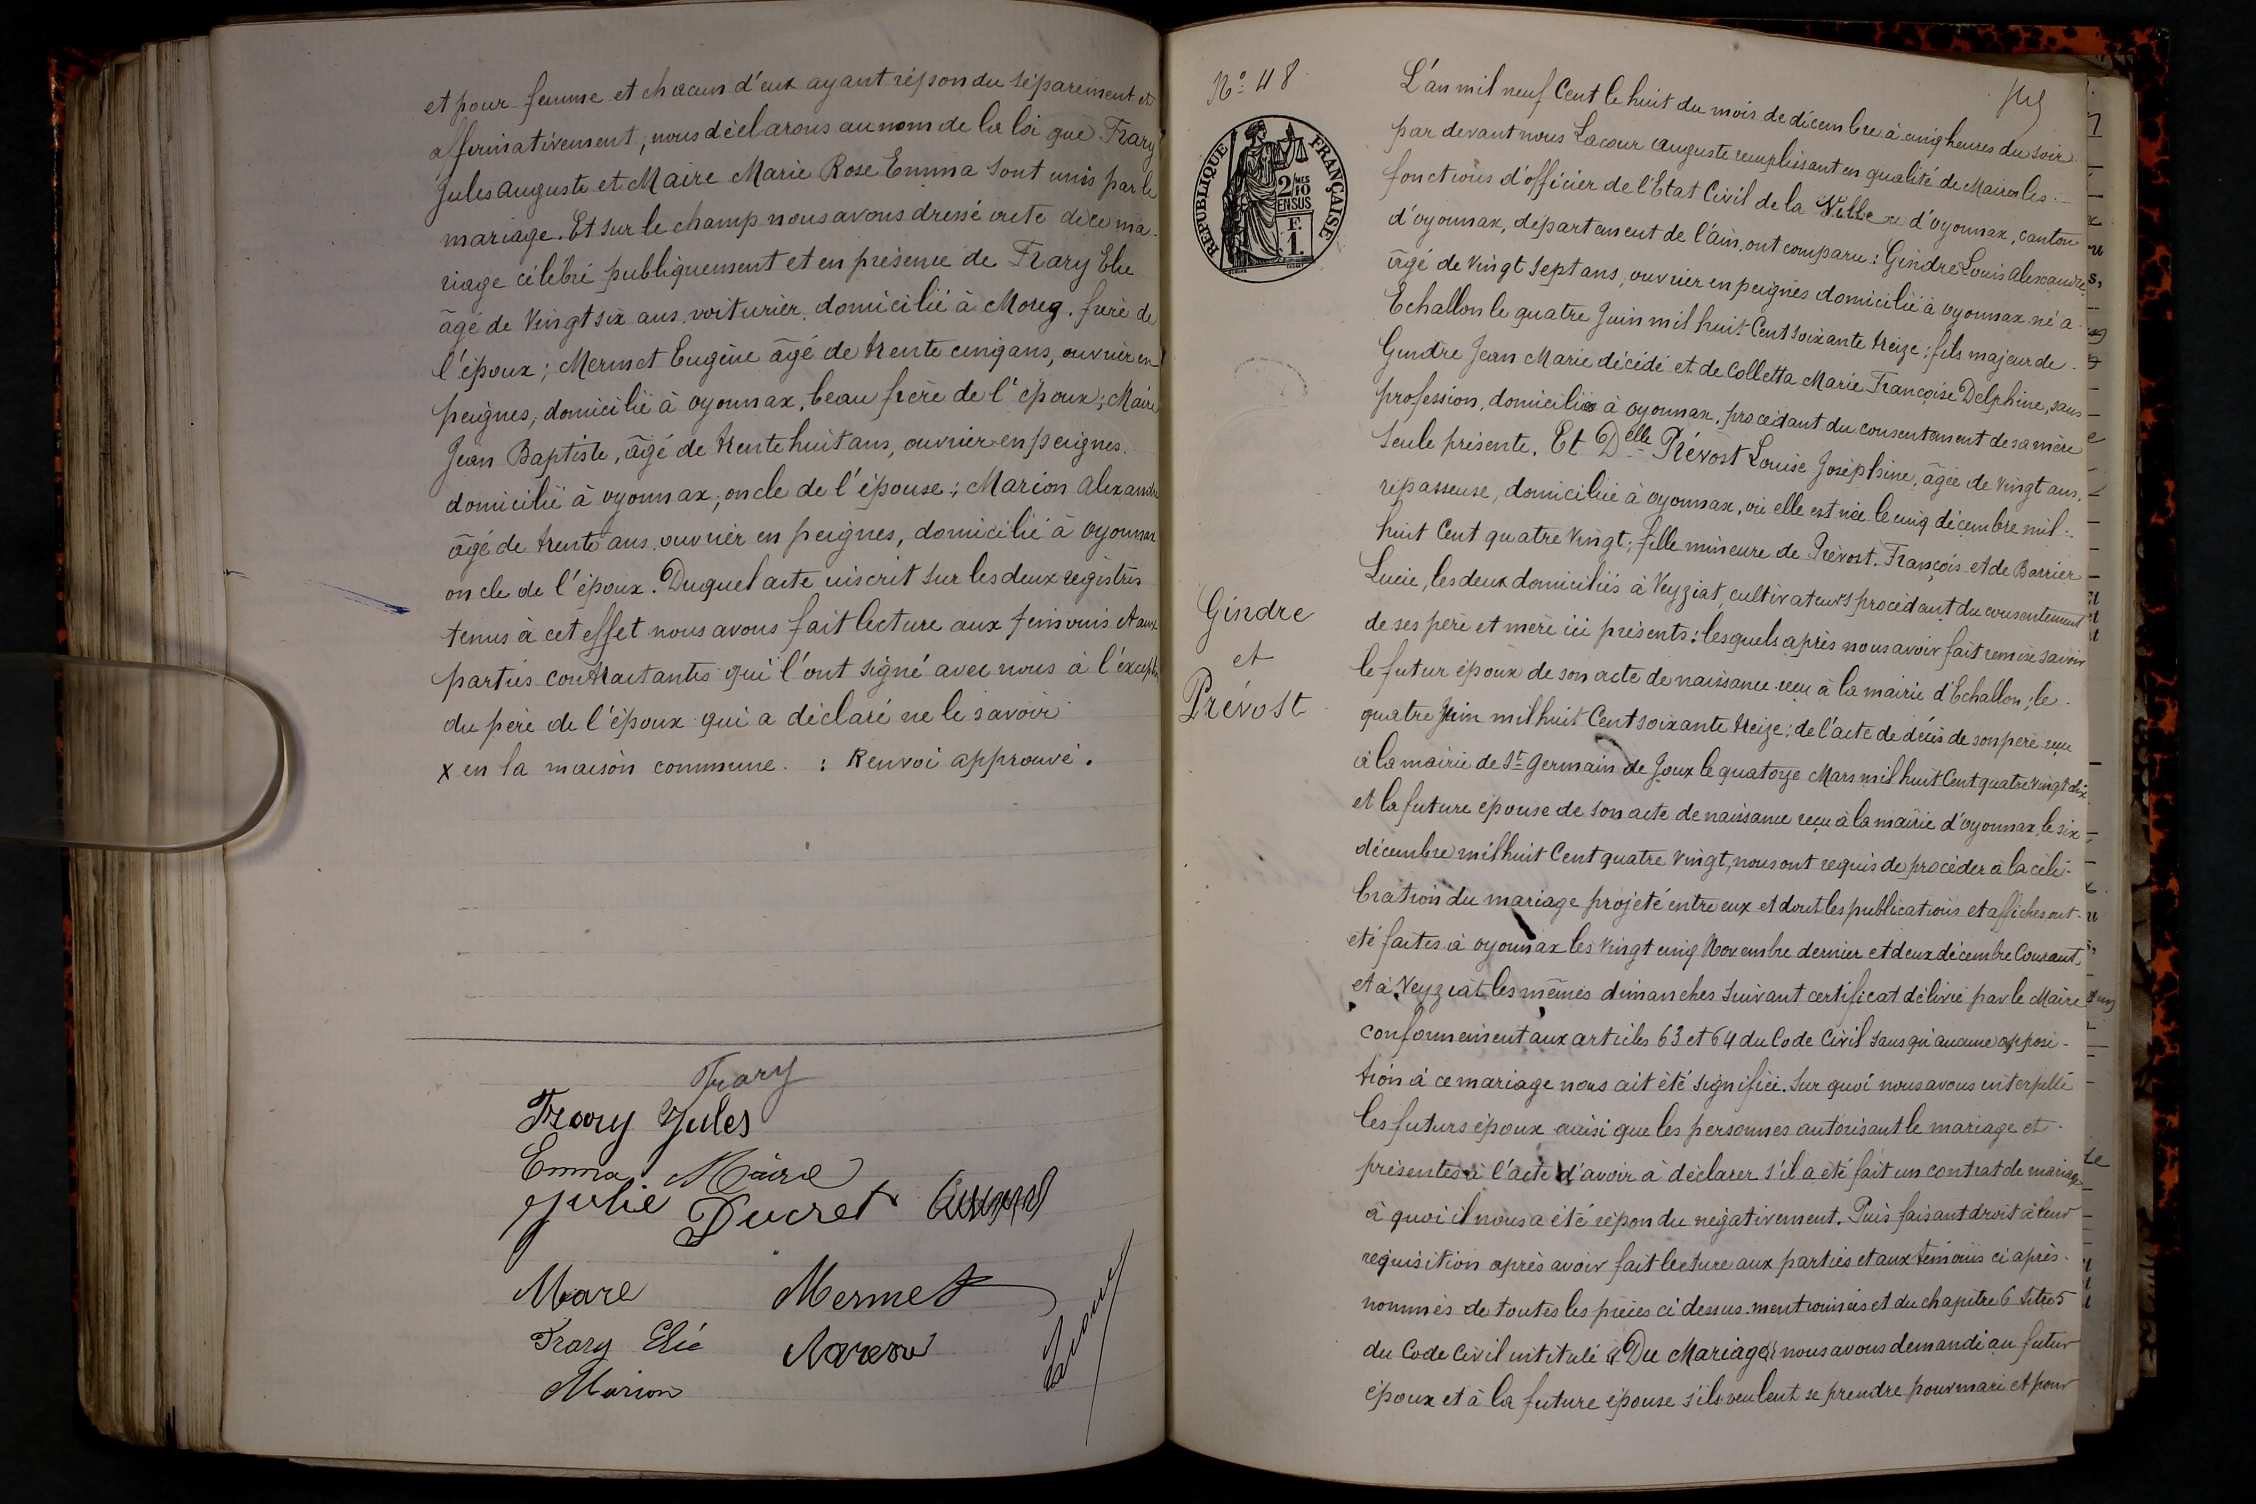 et pour femme et chacun d'eux ayant répondu séparément et
affirmativement, nous déclarons au nom de la loi que Frary
Jules auguste et Maire Marie Rose Emma sont unis par le
mariage. Et sur le champ nous avons dressé acte de ce ma-
riage célébré publiquement et en présence de Frary Elie
âgé de Vingt six ans, voiturier, domicilié à Moreg. frère de
l'époux; Mermet Eugène âgé de trente cinq ans, ouvrier en
peignes, domicilié à oyonnax, beau frère de l'époux; Maire
Jean Baptiste, âgé de trente huit ans, ouvrier en peignes.
domicilié à oyonnax, oncle de l'épouse; Marion alexandre
âgé de trente ans ouvrier en peignes, domicilié à oyonnax
oncle de l'époux. Duquel acte inscrit sur les deux registres
tenus à cet effet nous avons fait lecture aux témoins et aux
parties contractantes qui l'ont signé avec nous à l'exception
du père de l'époux qui a déclaré ne le savoir
x en la maison commune. : Renvoi approuvé.
Frary
Frary Jules
Emma Maire
Julie Ducret
Mare Mermet
Frary Elie
Marion
No 48
REPUBLIQUE FRANÇAISE
2/10 EN SUS
F. 1
Gindre
et
Prévost
L'an mil neuf Cent le huit du mois de décembre à cinq heures du soir
par devant nous Lacour auguste remplissant en qualité de Maire les
fonctions d'officier de l'Etat Civil de la Ville d'oyonnax, canton
d'oyonnax, département de l'ain, ont comparu: Gindre Louis alexandre
âgé de vingt sept ans, ouvrier en peignes domicilié à oyonnax né a
Echallon le quatre Juin mil huit Cent soixante treize; fils majeur de
Gindre Jean Marie décédé et de Colletta Marie Françoise Delphine, sans
profession, domiciliée à oyonnax, procédant du consentement de sa mère
Seule présente. Et Delle Prévost Louise Joséphine, âgée de vingt ans,
repasseuse, domiciliée à oyonnax, où elle est née le cinq décembre mil
huit Cent quatre vingt; fille mineure de Prévost François et de Barrier
Lucie, les deux domiciliés à Veyziat, cultivateurs procédant du consentement
de ses père et mère ici présents: lesquels après nous avoir fait remise savoir
le futur époux de son acte de naissance reçu à la mairie d'Echallon, le
quatre Juin mil huit Cent soixante treize; de l'acte de décès de son père reçu
à la mairie de St Germain de Joux le quatorze Mars mil huit Cent quatre vingt dix
et la future épouse de son acte de naissance reçu à la mairie d'oyonnax, le six
décembre mil huit Cent quatre vingt, nous ont requis de procéder à la célé-
bration du mariage projeté entre eux et dont les publications et affiches ont
été faites à oyonnax les vingt cinq Novembre dernier et deux décembre Courant,
et à Veyziat les mêmes dimanches suivant certificat délivré par le Maire
conformément aux articles 63 et 64 du Code Civil sans qu'aucune opposi-
tion à ce mariage nous ait été signifiée. Sur quoi nous avons interpellé
les futurs époux ainsi que les personnes autorisant le mariage et
présentes à l'acte d'avoir à déclarer s'il a été fait un contrat de mariage
à quoi il nous a été répondu négativement. Puis faisant droit à leur
requisition après avoir fait lecture aux parties et aux témoins ci après
nommés de toutes les pièces ci dessus mentionnées et du chapitre 6 titre 5
du Code Civil intitulé "Du Mariage" nous avons demandé au futur
époux et à la future épouse s'ils veulent se prendre pour mari et pour